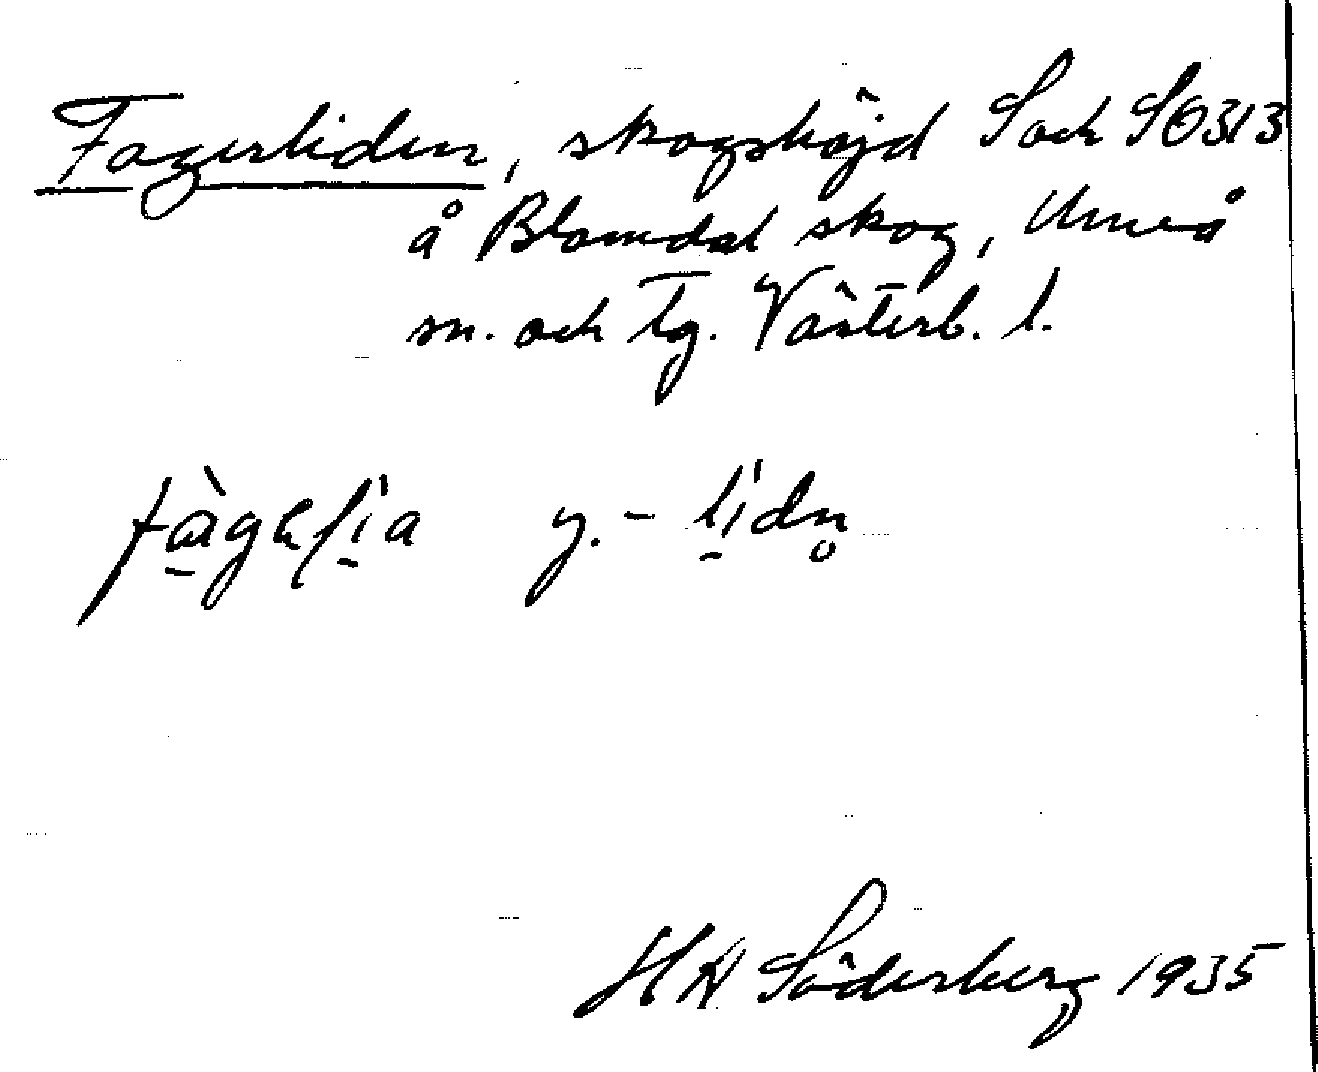 Fagerliden, skogshöjd S och SO 313
å Blomdal skog, Umeå
sn. och tg. Västerb. l.
y. - lidn̥
HH Söderberg 1935